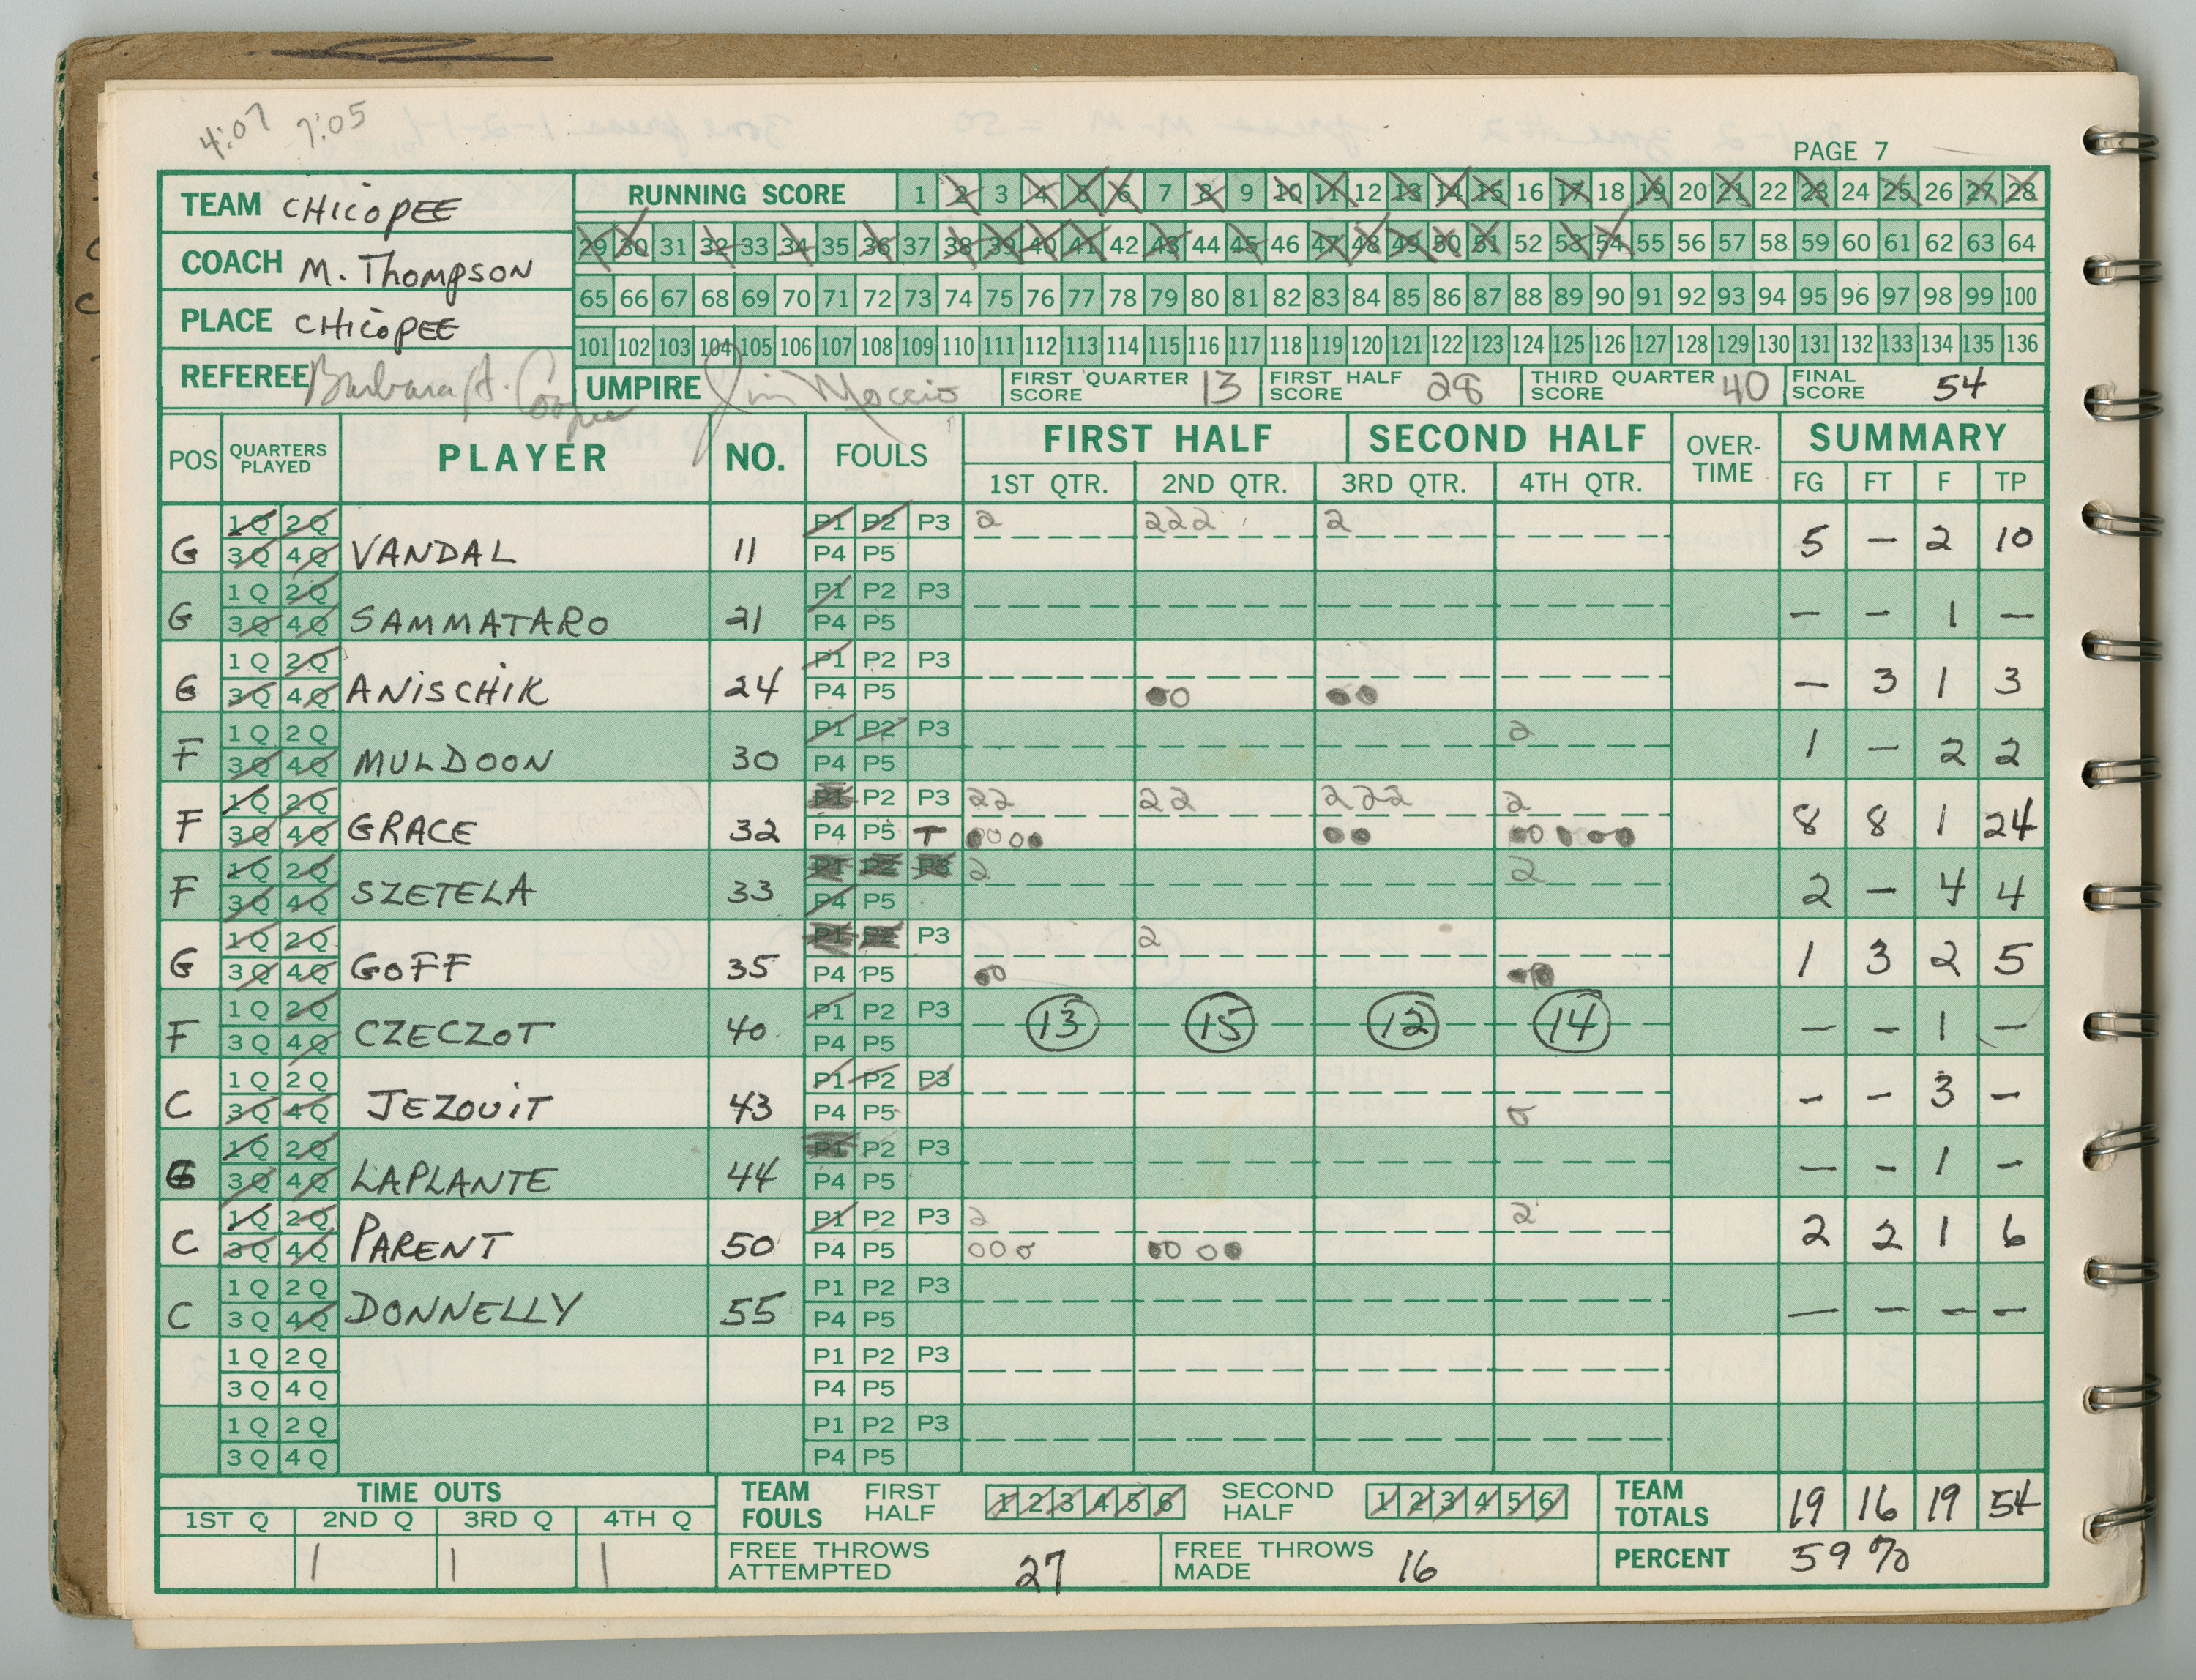 4:07 7:05
PAGE 7
TEAM CHICOPEE
COACH M. THOMPSON
PLACE CHICOPEE
REFEREE Barbara A. Cooper
RUNNING SCORE 1 2 3 4 5 6 7 8 9 10 11 12 13 14 15 16 17 18 19 20 21 22 23 24 25 26 27 28
29 30 31 32 33 34 35 36 37 38 39 40 41 42 43 44 45 46 47 48 49 50 51 52 53 54 55 56 57 58 59 60 61 62 63 64
65 66 67 68 69 70 71 72 73 74 75 76 77 78 79 80 81 82 83 84 85 86 87 88 89 90 91 92 93 94 95 96 97 98 99 100
101 102 103 104 105 106 107 108 109 110 111 112 113 114 115 116 117 118 119 120 121 122 123 124 125 126 127 128 129 130 131 132 133 134 135 136
UMPIRE Jim Moccio FIRST QUARTER SCORE 13 FIRST HALF SCORE 28 THIRD QUARTER SCORE 40 FINAL SCORE 54
POS QUARTERS PLAYED PLAYER NO. FOULS FIRST HALF SECOND HALF OVER-TIME SUMMARY
1ST QTR. 2ND QTR. 3RD QTR. 4TH QTR. FG FT F TP
1 Q 2 Q P1 P2 P3 2 222 2
G 3 Q 4 Q VANDAL 11 P4 P5 5 - 2 10
1 Q 2 Q P1 P2 P3
G 3 Q 4 Q SAMMATARO 21 P4 P5 - - 1 -
1 Q 2 Q P1 P2 P3
G 3 Q 4 Q ANISCHIK 24 P4 P5 - 3 1 3
1 Q 2 Q P1 P2 P3 2
F 3 Q 4 Q MULDOON 30 P4 P5 1 - 2 2
1 Q 2 Q P1 P2 P3 22 22 222 2
F 3 Q 4 Q GRACE 32 P4 P5 T 8 8 1 24
1 Q 2 Q P1 P2 P3 2 2
F 3 Q 4 Q SZETELA 33 P4 P5 2 - 4 4
1 Q 2 Q P1 P2 P3 2
G 3 Q 4 Q GOFF 35 P4 P5 1 3 2 5
1 Q 2 Q P1 P2 P3 13 15 12 14
F 3 Q 4 Q CZECZOT 40 P4 P5 - - 1 -
1 Q 2 Q P1 P2 P3
C 3 Q 4 Q JEZOUIT 43 P4 P5 - - 3 -
1 Q 2 Q P1 P2 P3
G 3 Q 4 Q LAPLANTE 44 P4 P5 - - 1 -
1 Q 2 Q P1 P2 P3 2 2
C 3 Q 4 Q PARENT 50 P4 P5 2 2 1 6
1 Q 2 Q P1 P2 P3
C 3 Q 4 Q DONNELLY 55 P4 P5 - - - -
1 Q 2 Q P1 P2 P3
3 Q 4 Q P4 P5
1 Q 2 Q P1 P2 P3
3 Q 4 Q P4 P5
TIME OUTS TEAM FOULS FIRST HALF 1 2 3 4 5 6 SECOND HALF 1 2 3 4 5 6 TEAM TOTALS 19 16 19 54
1ST Q 2ND Q 3RD Q 4TH Q
1 1 1 FREE THROWS ATTEMPTED 27 FREE THROWS MADE 16 PERCENT 59%